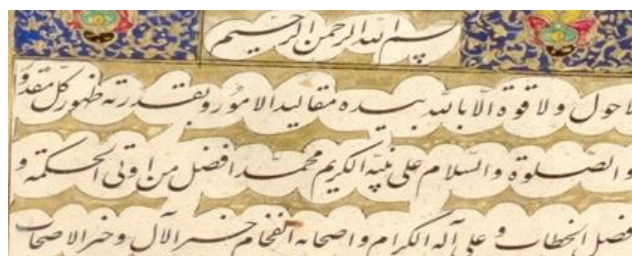 بسم الله الرحمن الرحيم
لاحول ولا قوة الا بالله بيده مقاليد الامور وبقدرته ظهور كل مقدور
والصلوة والسلام على نبيه الكريم محمد افضل من اوتى الحكمة و
فصل الخطاب و على آله الكرام واصحابه الفخام خير الآل وخير الاصحاب